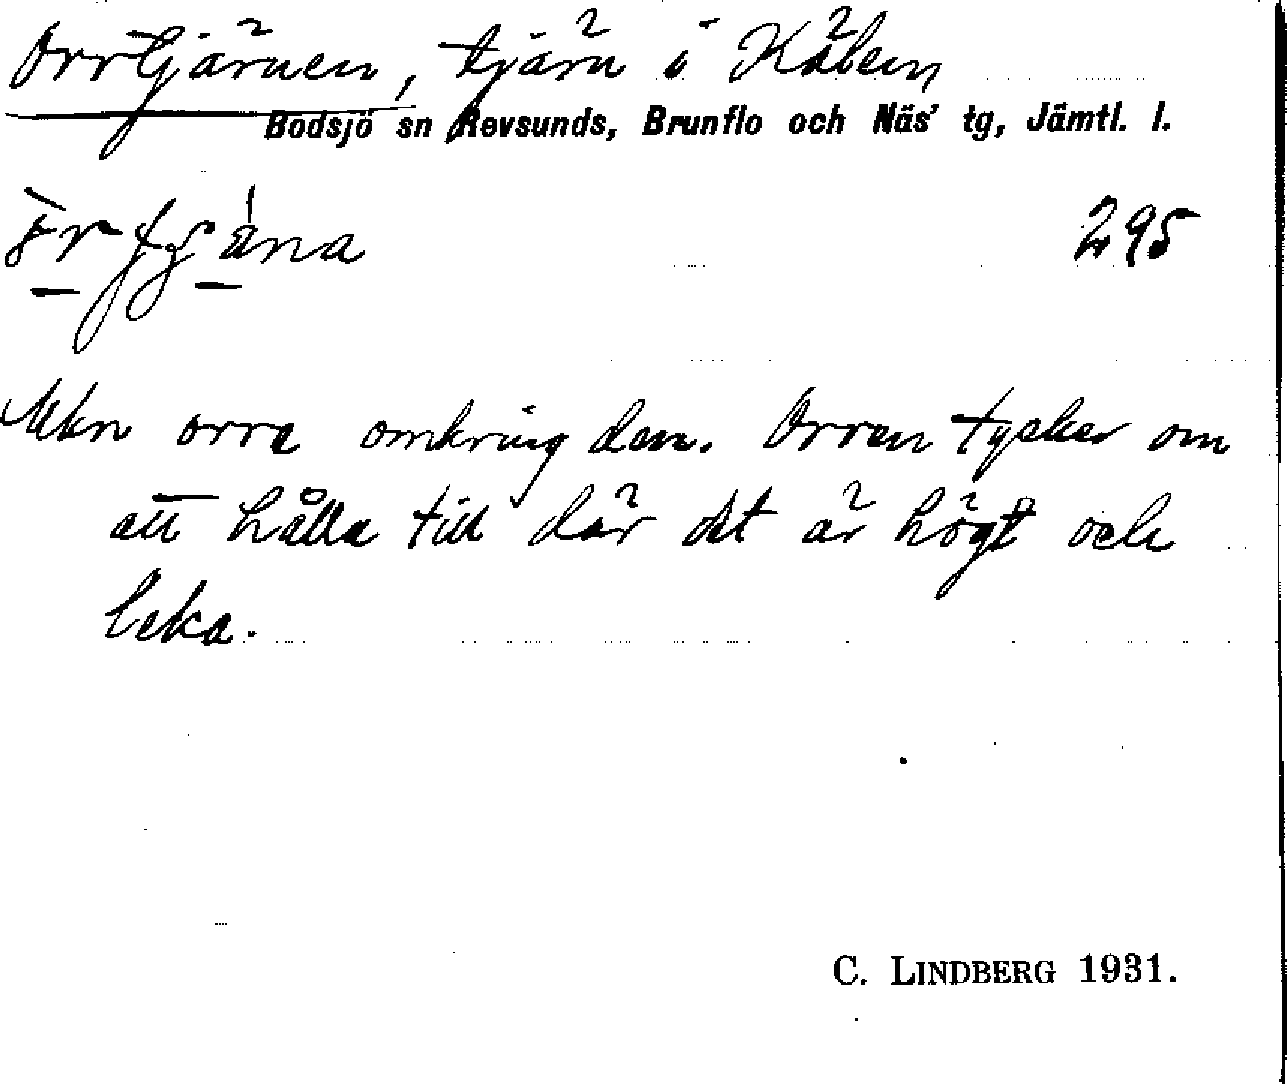 Orrtjärnen, tjärn i Kälen
Bodsjö sn Revsunds, Brunflo och Näs' tg, Jämtl. l.
295
orra omkring den. Orren tycker om
att hålla till där det är högt och
leka.
C. LINDBERG 1931.